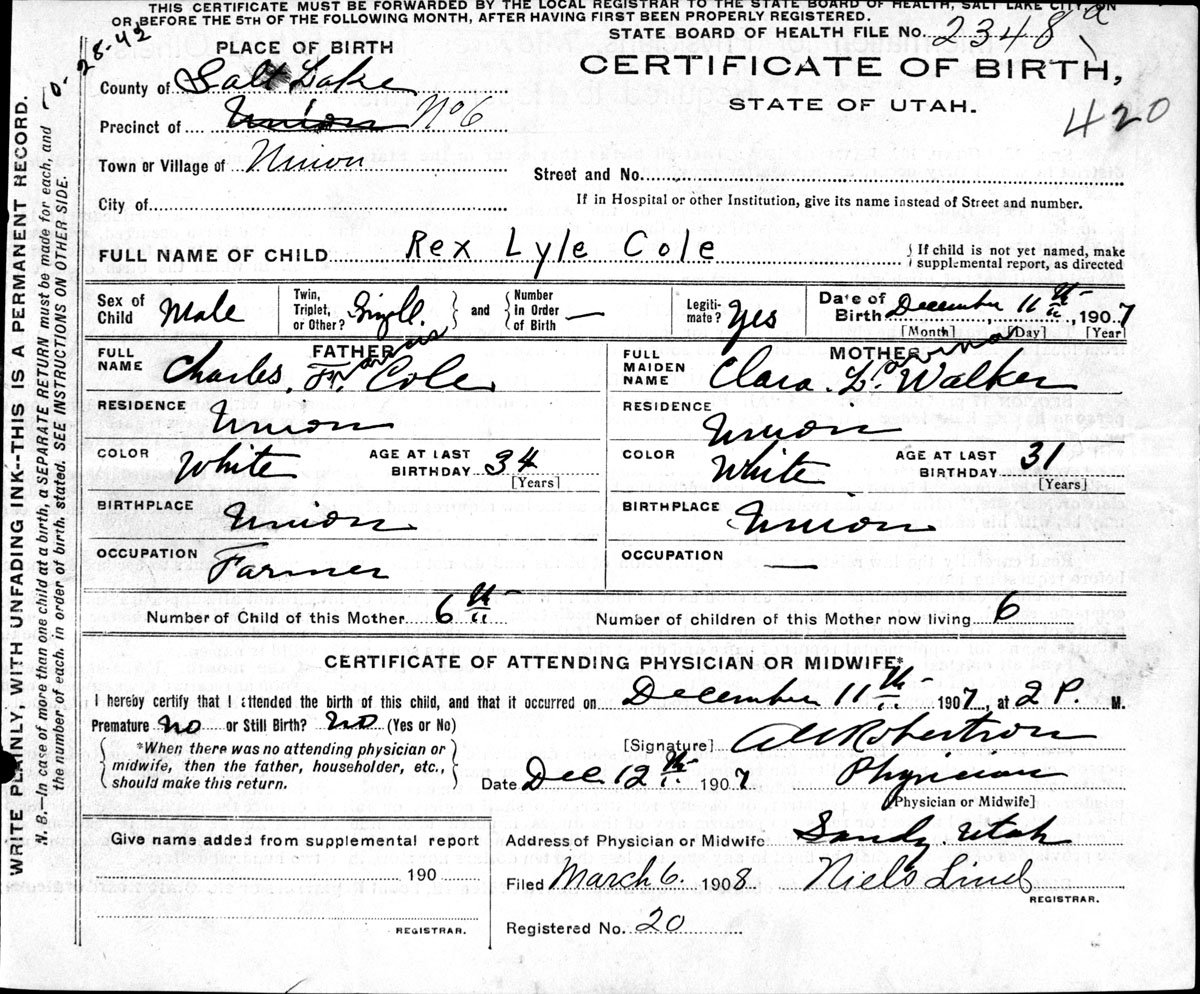 THIS CERTIFICATE MUST BE FORWARDED BY THE LOCAL REGISTRAR TO THE STATE BOARD OF HEALTH, SALT LAKE CITY, ON
OR BEFORE THE 5TH OF THE FOLLOWING MONTH, AFTER HAVING FIRST BEEN PROPERLY REGISTERED.
STATE BOARD OF HEALTH FILE No. 2348 a
28-42
PLACE OF BIRTH
CERTIFICATE OF BIRTH,
STATE OF UTAH.
420
County of Salt Lake
Precinct of Union No 6
Town or Village of Union
Street and No.
City of
If in Hospital or other Institution, give its name instead of Street and number.
FULL NAME OF CHILD Rex Lyle Cole
{If child is not yet named, make supplemental report, as directed
Sex of Child Male
Twin, Triplet, or Other? Single
and {Number in Order of Birth —
Legiti-mate? Yes
Date of Birth December 11th, 1907
[Month] [Day] [Year]
FATHER
FULL NAME Charles Fr. Cole
RESIDENCE Union
COLOR White
AGE AT LAST BIRTHDAY 34
[Years]
BIRTHPLACE Union
OCCUPATION Farmer
MOTHER
FULL MAIDEN NAME Clara L. Walker
RESIDENCE Union
COLOR White
AGE AT LAST BIRTHDAY 31
[Years]
BIRTHPLACE Union
OCCUPATION —
Number of Child of this Mother 6th
Number of children of this Mother now living 6
CERTIFICATE OF ATTENDING PHYSICIAN OR MIDWIFE*
I hereby certify that I attended the birth of this child, and that it occurred on December 11th 1907, at 2 P. M.
Premature no or Still Birth? no (Yes or No)
{*When there was no attending physician or midwife, then the father, householder, etc., should make this return.}
[Signature] A Robertson
Date Dec 12th 1907
Physician
[Physician or Midwife]
Give name added from supplemental report
190
REGISTRAR.
Address of Physician or Midwife Sandy Utah
Filed March 6. 1908 Niels Lind
REGISTRAR.
Registered No. 20
WRITE PLAINLY, WITH UNFADING INK--THIS IS A PERMANENT RECORD.
N. B.—In case of more than one child at a birth, a SEPARATE RETURN must be made for each, and
the number of each, in order of birth, stated. SEE INSTRUCTIONS ON OTHER SIDE.